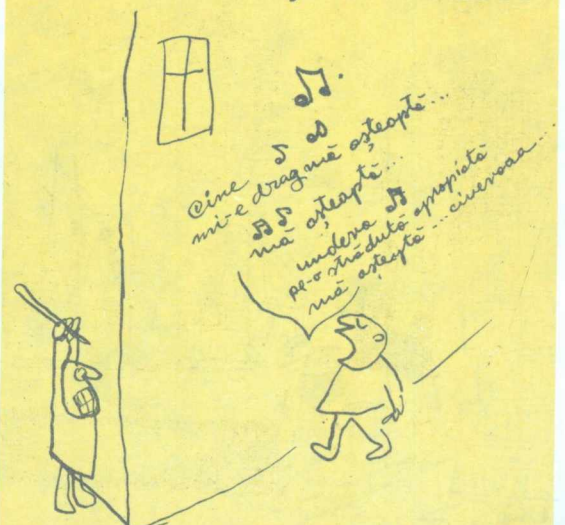 Cine
mi-e drag mă așteaptă...
mă așteaptă...
undeva
pe-o străduță apropiată
mă așteaptă... cinevaaa...